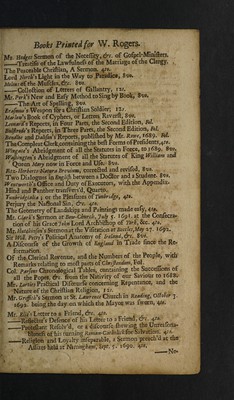 Books Printed for W. Rogers.
Mr. Hodges Sermon of the Necessity, &c. of Gospel-Ministers.
—Treatise of the Lawfulness of the Marriage of the Clergy.
The Peaceable Christian, A Sermon, 4to.
Lord North's Light in the Way to Paradise, 8vo.
of the Muscles, &c. 8vo.
—Collection of Letters of Gallantry, 12s.
Mr. Perk's New and Easy Method to Sing by Book, 8vo.
—The Art of Spelling, 8vo.
Erasmus's Weapon for a Christian Soldier; 12s.
Marlow's Book of Cyphers, or Letters, Revers'd, 8vo.
Leonard's Reports, in Four Parts, the Second Edition, Fol.
Bulstrode's Reports, in Three Parts, the Second Edition, Fol.
Benlow and Dalison's Reports, published by Mr. Rowe, 1689. Fol.
The Compleat Clerk, containing the best Forms of Presidents, 4to.
Wingate's Abridgment of all the Statutes in Force, to 1689. 8vo.
Washington's Abridgment of all the Statutes of King William and
Queen Mary now in Force and Use. 8vo.
Ray Herbarix Natura Brevium, corrected and revised, 8vo.
Two Dialogues in English between a Doctor and a Student. 8vo.
Wentworth's Office and Duty of Executors, with the Appendix.
Hind and Panther transvers'd, Quarto.
Tunbridgialia; or the Pleasures of Tunbridge, 4to.
Perjury the National Sin, &c. 4to.
The Geometry of Landskips and Paintings made easy, 4to.
Mr. Gipps's Sermon at Bow-Church, July 5. 1691. at the Consecra-
tion of his Grace the Lord Archbishop of York, &c. 4to.
Mr. Harrison's Sermon at the Visitation at Baricke, May 12. 1691.
Sir Will. Petty's Political Anatomy of Ireland, &c. 8vo.
A Discourse of the Growth of England in Trade since the Re-
formation.
Of the Clerical Revenue, and the Numbers of the People, with
Remarks relating to most parts of Christendom, Fol.
Col. Parsons Chronological Tables, containing the Succession of
all the Popes, &c. from the Nativity of our Saviour to 1688.
Mr. Practical Discourse concerning Repentance, and the
Nature of the Christian Religion, 12s.
Mr. Gressin's Sermon at St. Lawrence Church in Reading, October 7.
1690. being the day on which the Mayor was sworn, 4to.
Mr. Ellis's Letter to a Friend, &c. 4to.
—Reflecter's Defence of his Letter to a Friend, &c. 4to.
—Protestant Resolv'd, or a discourse shewing the Unreaso-
bleness of his turning Roman Catholick for Salvation. 4to.
—Religion and Loyalty inseparable, a Sermon preach'd at the
Assizes held at Nottingham, Sept. 5. 1690. 4to.
—No-